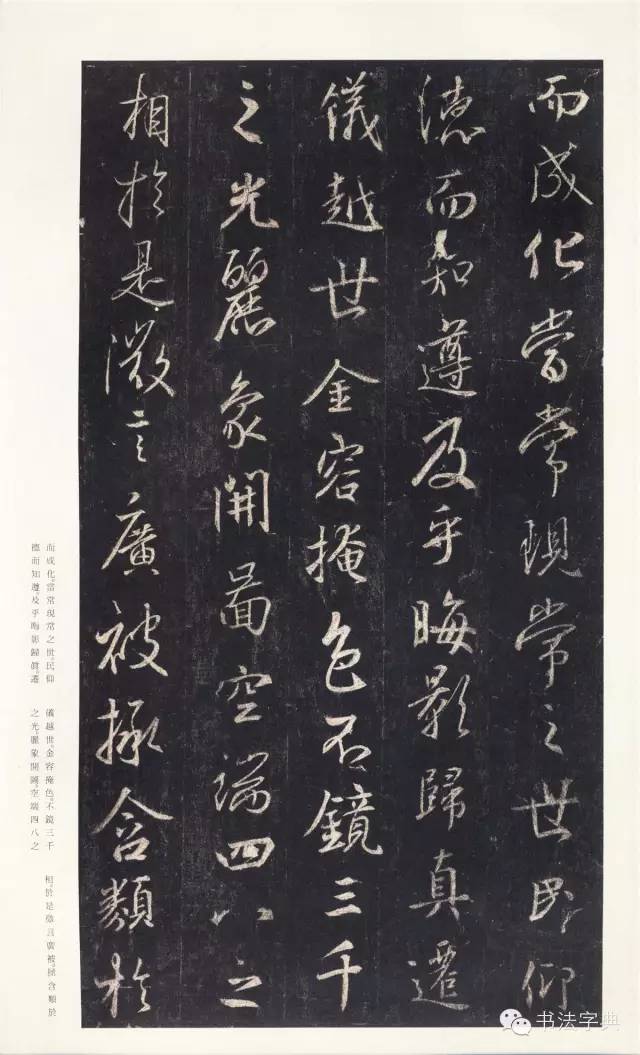 而成化當常現常之世民仰
德而知遵及乎晦影歸真遷
儀越世金容掩色不鏡三千
之光麗象開啚空端四八之
相於是微言廣被拯含類於
而成化。當常現常之世。民仰
德而知遵。及乎晦影歸眞。遷
儀越世。金容掩色。不鏡三千
之光。麗象開圖。空端四八之
相。於是微言廣被。拯含類於
书法字典